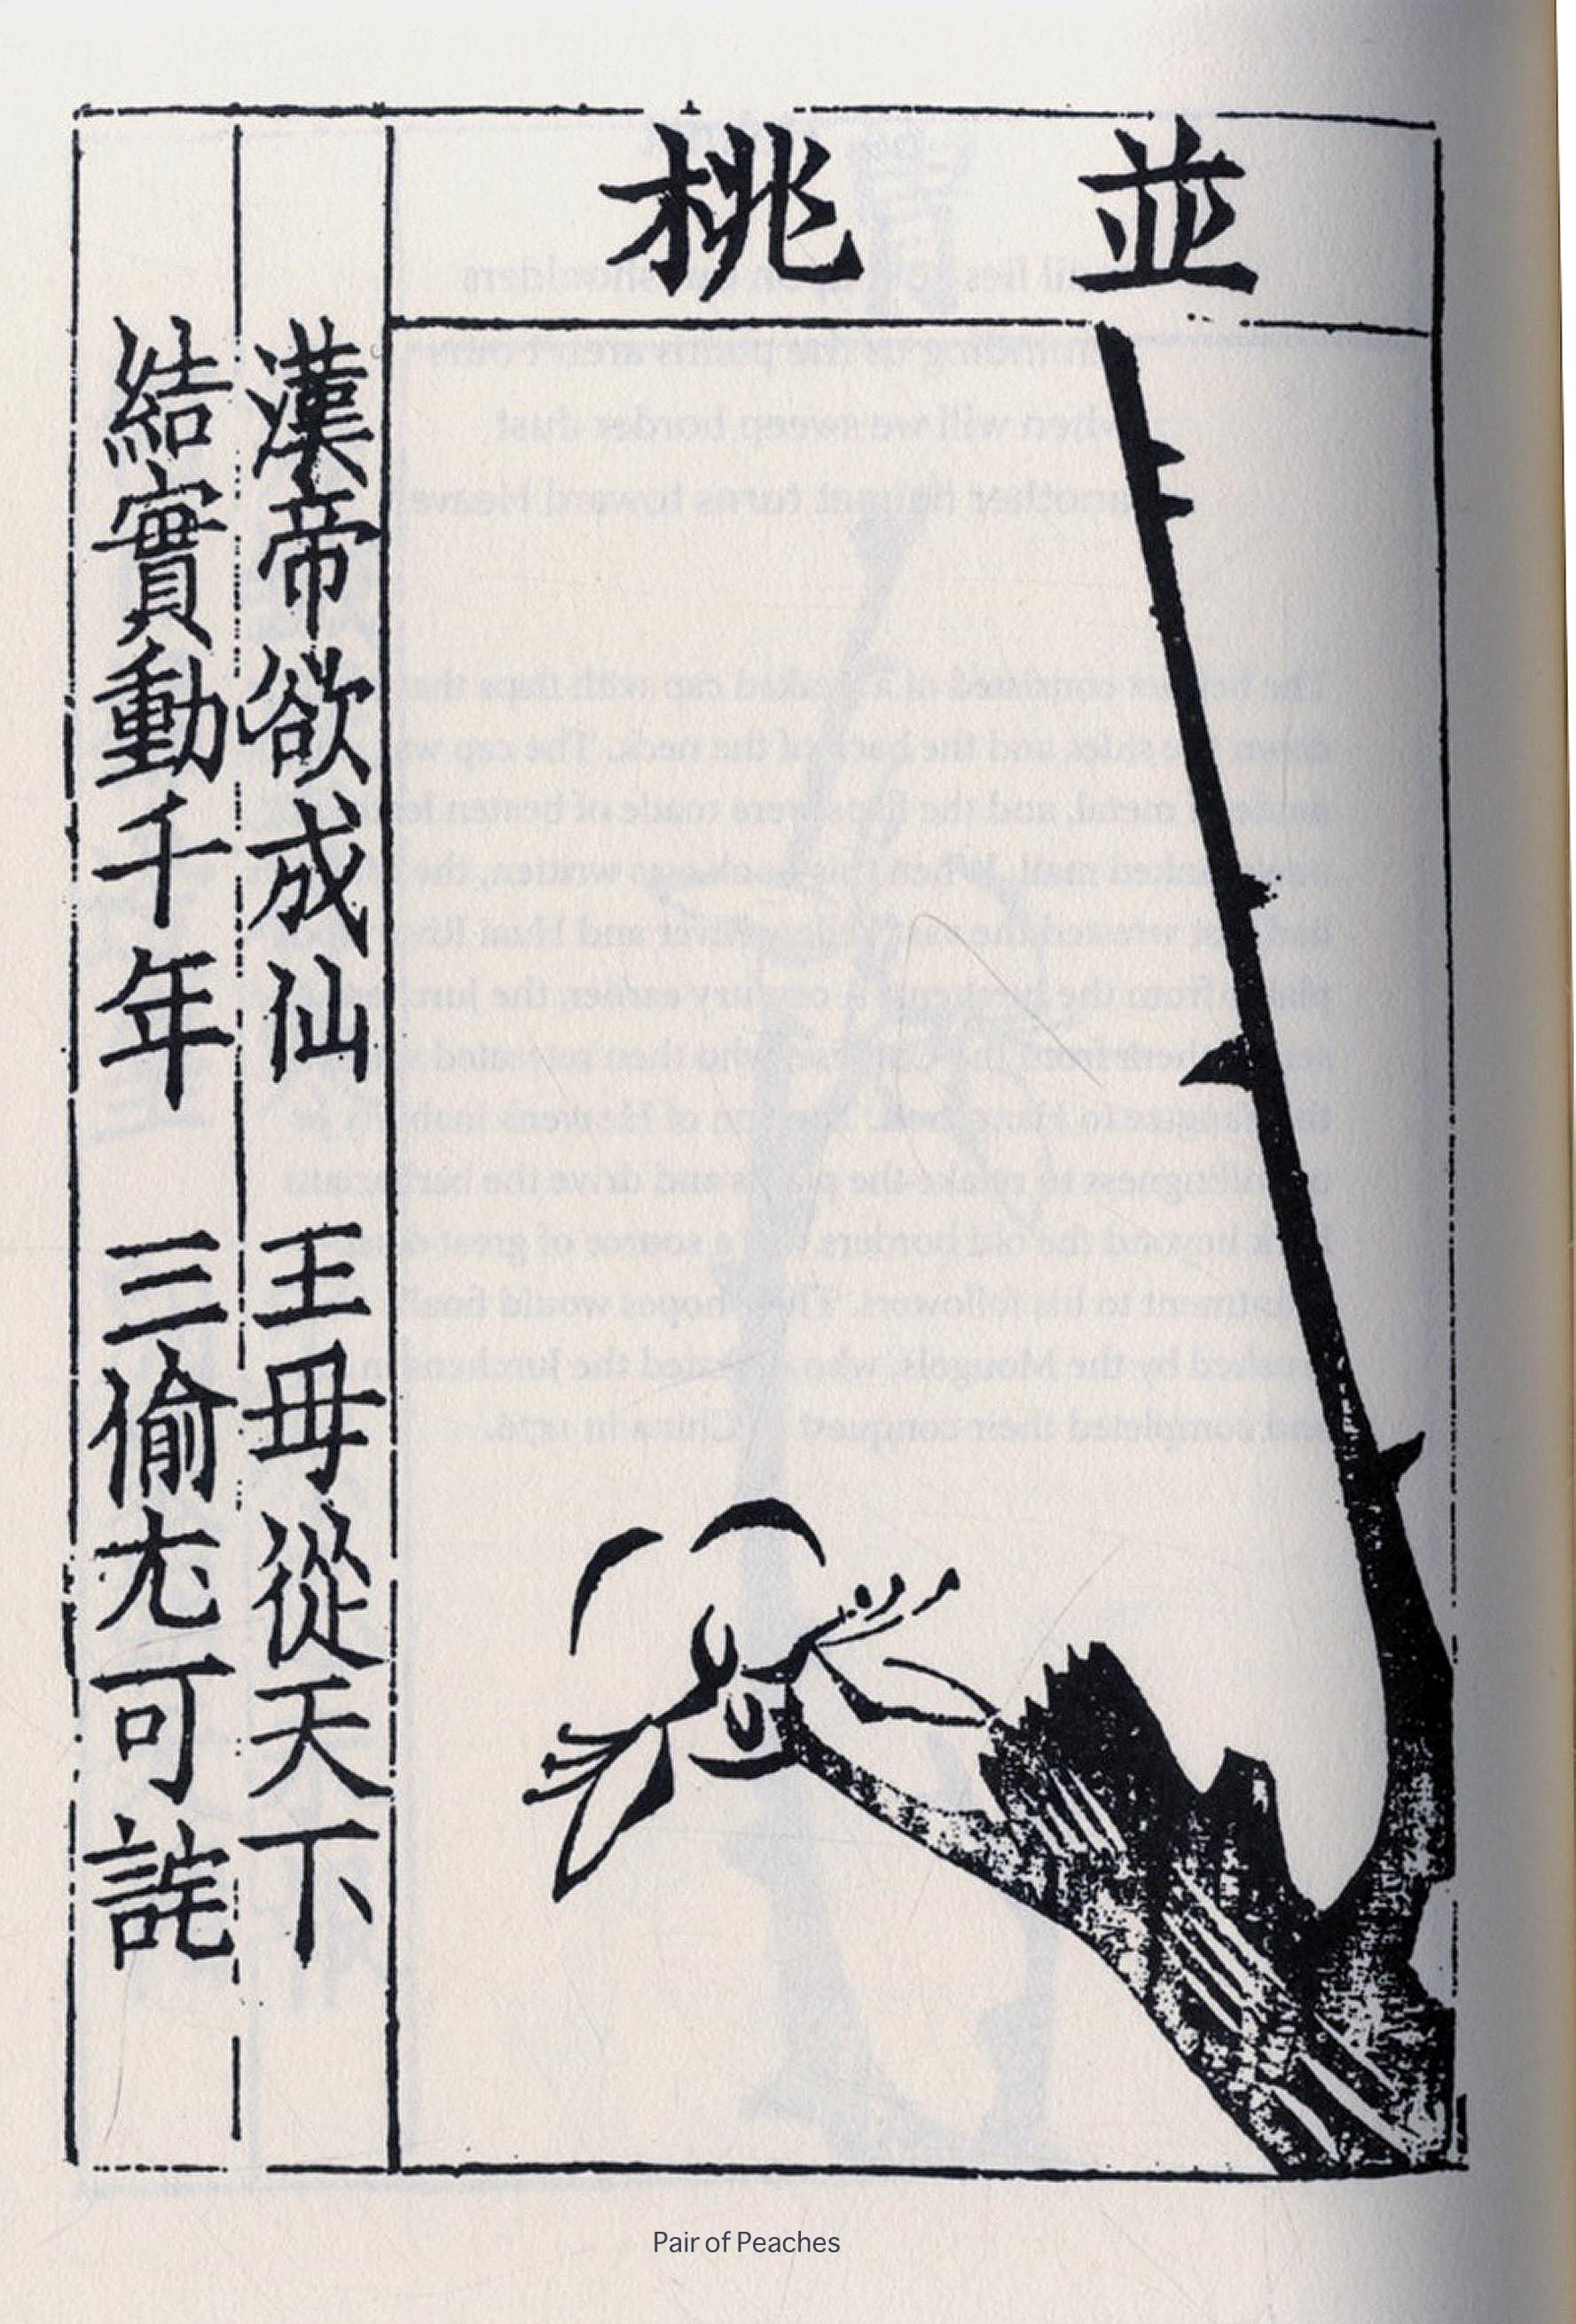 並桃
漢帝欲成仙 王毋從天下
結實動千年 三偷尤可詫
Pair of Peaches